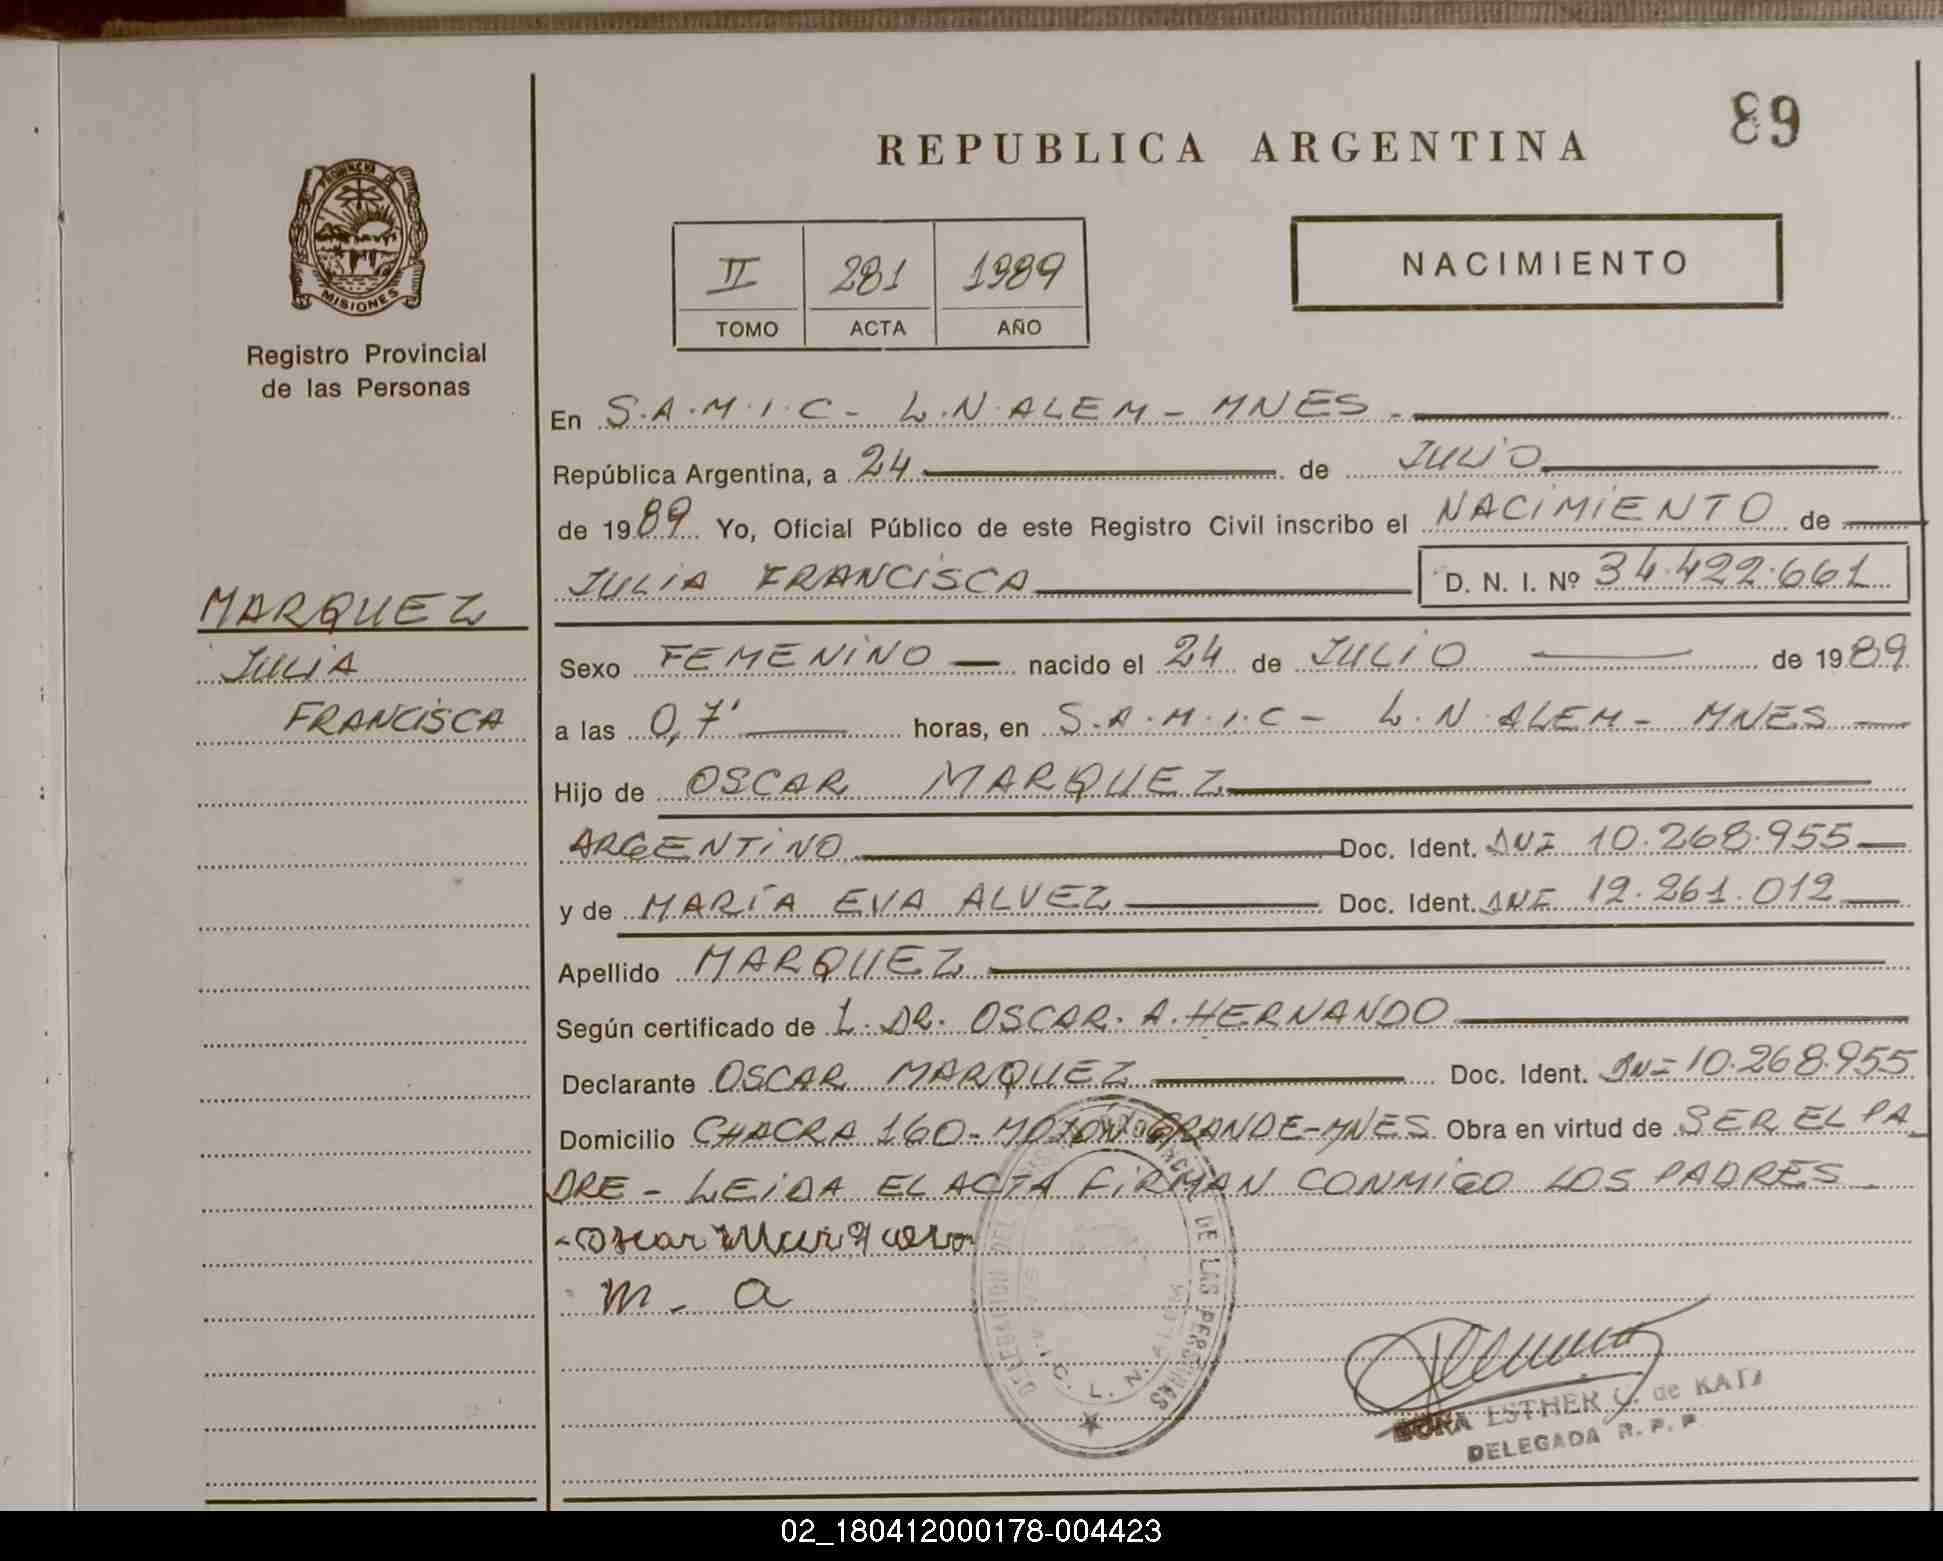 89
REPUBLICA ARGENTINA
PROVINCIA DE
MISIONES
Registro Provincial
de las Personas
II 281 1989
TOMO ACTA AÑO
NACIMIENTO
En S.A.M.I.C - L.N.ALEM - MNES -
República Argentina, a 24 de JULIO
de 1989 Yo, Oficial Público de este Registro Civil inscribo el NACIMIENTO de
JULIA FRANCISCA D. N. I. Nº 34.422.661
MARQUEZ
JULIA
FRANCISCA
Sexo FEMENINO nacido el 24 de JULIO de 1989
a las 0,7' horas, en S.A.M.I.C - L.N.ALEM - MNES
Hijo de OSCAR MARQUEZ
ARGENTINO Doc. Ident. DNI 10.268.955
y de MARÍA EVA ALVEZ Doc. Ident. DNI 12.261.012
Apellido MARQUEZ
Según certificado de L. DR. OSCAR. A. HERNANDO
Declarante OSCAR MARQUEZ Doc. Ident. DNI 10.268.955
Domicilio CHACRA 160 - MOJÓN GRANDE - MNES Obra en virtud de SER EL PA
DRE - LEIDA EL ACTA FIRMAN CONMIGO LOS PADRES
- Oscar
m. a
DELEGACION DEL REGISTRO PROVINCIAL DE LAS PERSONAS
S.A.M.I.C. L. N. ALEM
ESTHER C. de KATZ
DELEGADA R. P. P.
02_180412000178-004423